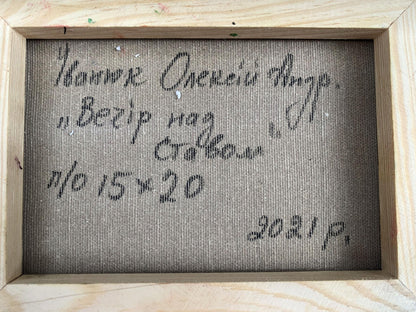 Іванюк Олексій Андр.
„Вечір над
ставом"
п/о 15х20
2021 р.